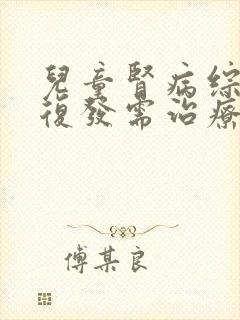 兒童腎病綜
復發需治療
傅某良